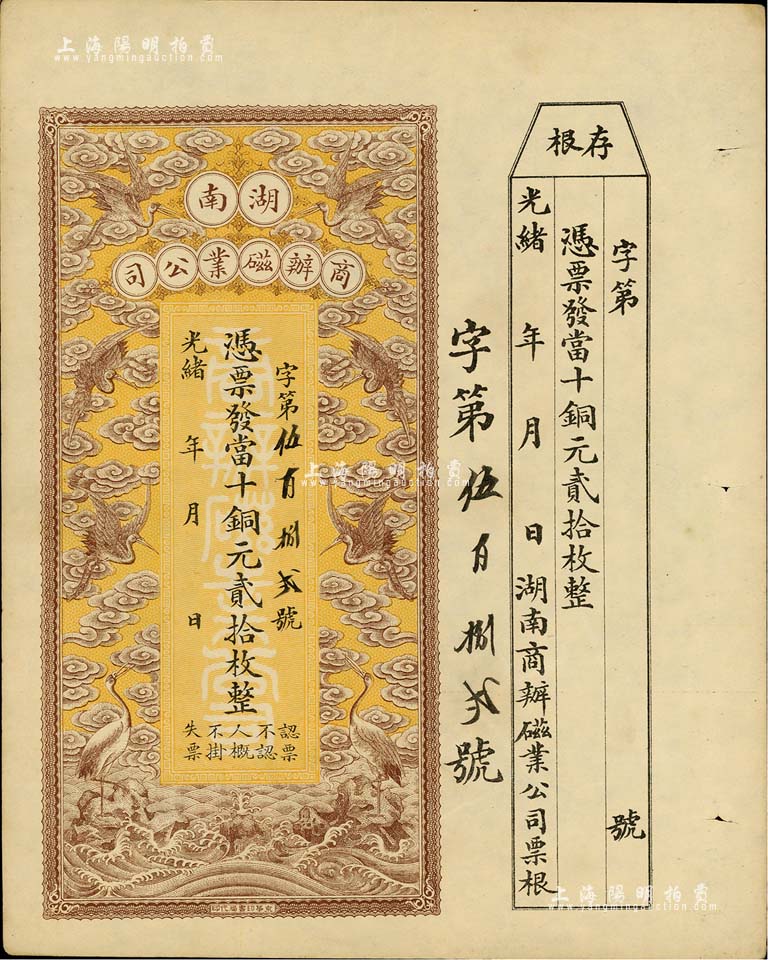 上海陽明拍賣
www.yangmingauction.com
存根
字第 號
憑票發當十銅元貳拾枚整
光緒 年 月 日湖南商辦磁業公司票根
字第伍百捌弍號
湖南
商辦磁業公司
字第伍百捌弍號
憑票發當十銅元貳拾枚整
光緒 年 月 日
認票
不認
人概
不掛
失票
上海陽明拍賣
www.yangmingauction.com
上海陽明拍賣
www.yangmingauction.com